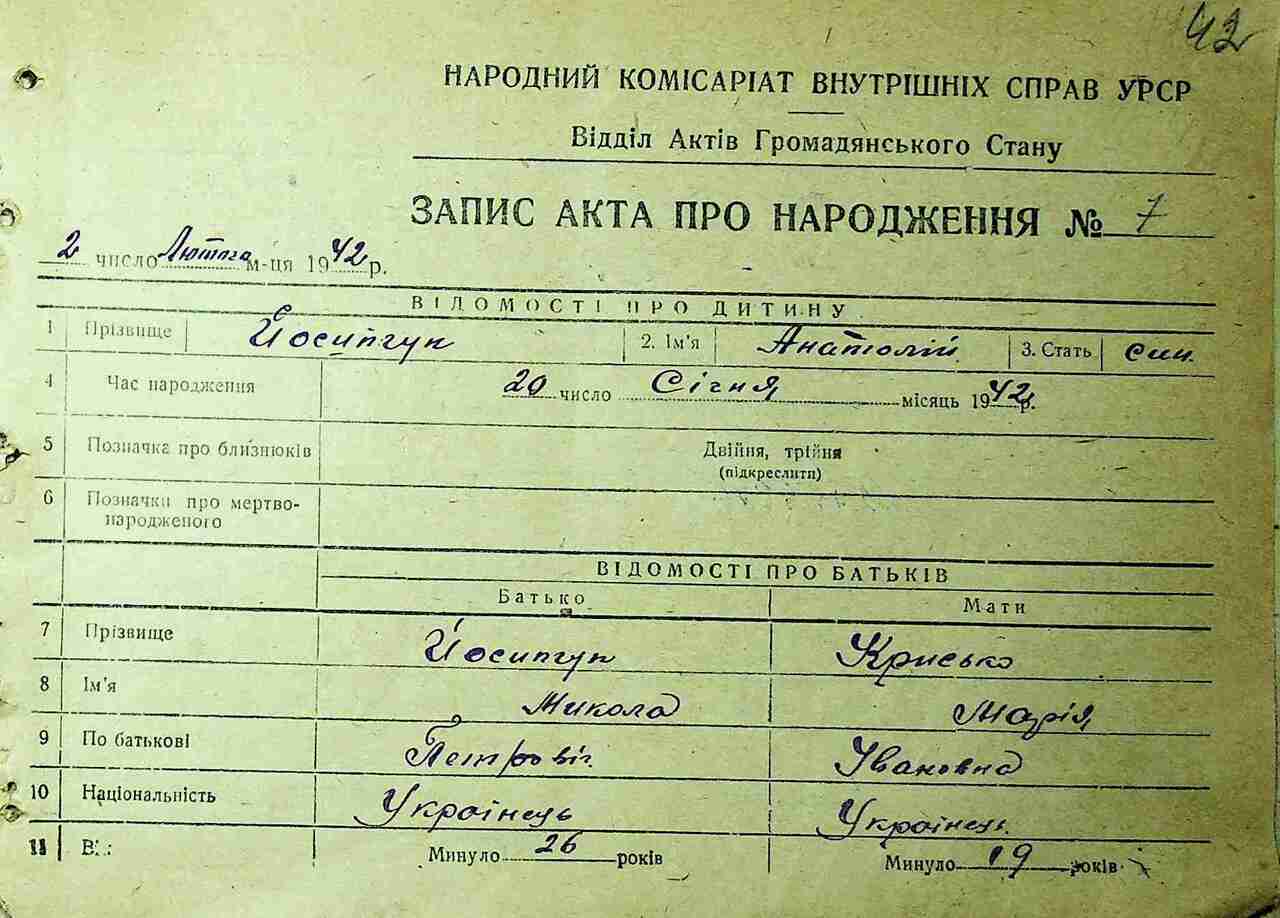 42
НАРОДНИЙ КОМІСАРІАТ ВНУТРІШНІХ СПРАВ УРСР
Відділ Актів Громадянського Стану
ЗАПИС АКТА ПРО НАРОДЖЕННЯ № 7
2 число Лютого м-ця 1942 р.
ВІДОМОСТІ ПРО ДИТИНУ
1 Прізвище Йосипчук 2. Ім'я Анатолій 3. Стать син.
4 Час народження 20 число Січня місяць 1942 р.
5 Позначка про близнюків Двійня, трійня
(підкреслити)
6 Позначки про мертво-
народженого
ВІДОМОСТІ ПРО БАТЬКІВ
Батько Мати
7 Прізвище Йосипчук Крисько
8 Ім'я Микола Марія
9 По батькові Петровіч Івановна
10 Національність Українець Українець
11 Минуло 26 років Минуло 19 років